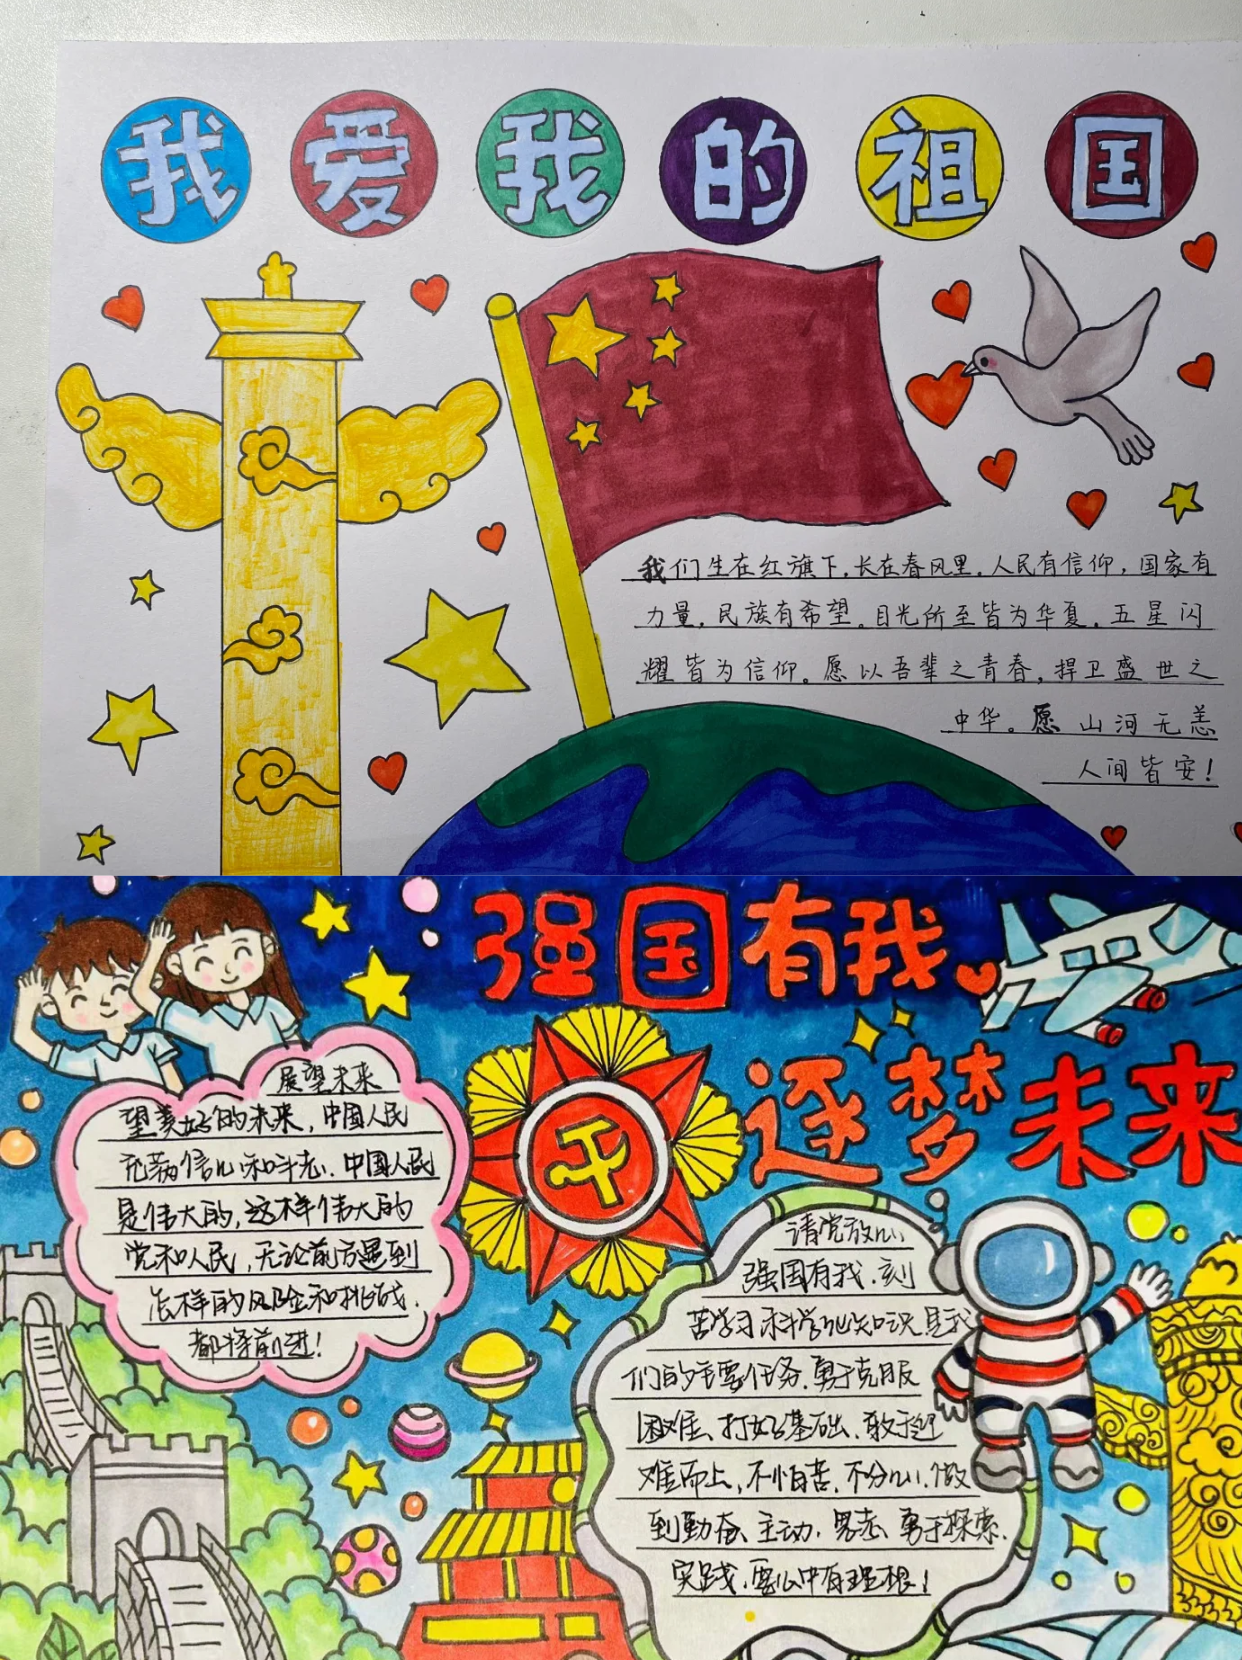 我爱我的祖国
我们生在红旗下.长在春风里.人民有信仰,国家有
力量.民族有希望。目光所至皆为华夏.五星闪
耀皆为信仰。愿以吾辈之青春,捍卫盛世之
中华。愿山河无恙
人间皆安!
强国有我
逐梦未来
展望未来
望美好的未来,中国人民
充满信心和斗志.中国人民
是伟大的,这样伟大的
党和人民,无论前方遇到
怎样的风险和挑战.
都将前进!
请党放心
强国有我.刻
苦学习科学化知识是我
们的主要任务.勇于克服
困难、打好基础、敢于迎
难而上,不怕苦.不分心.做
到勤奋、主动.思考、勇于探索.
实践.要心中有理想!